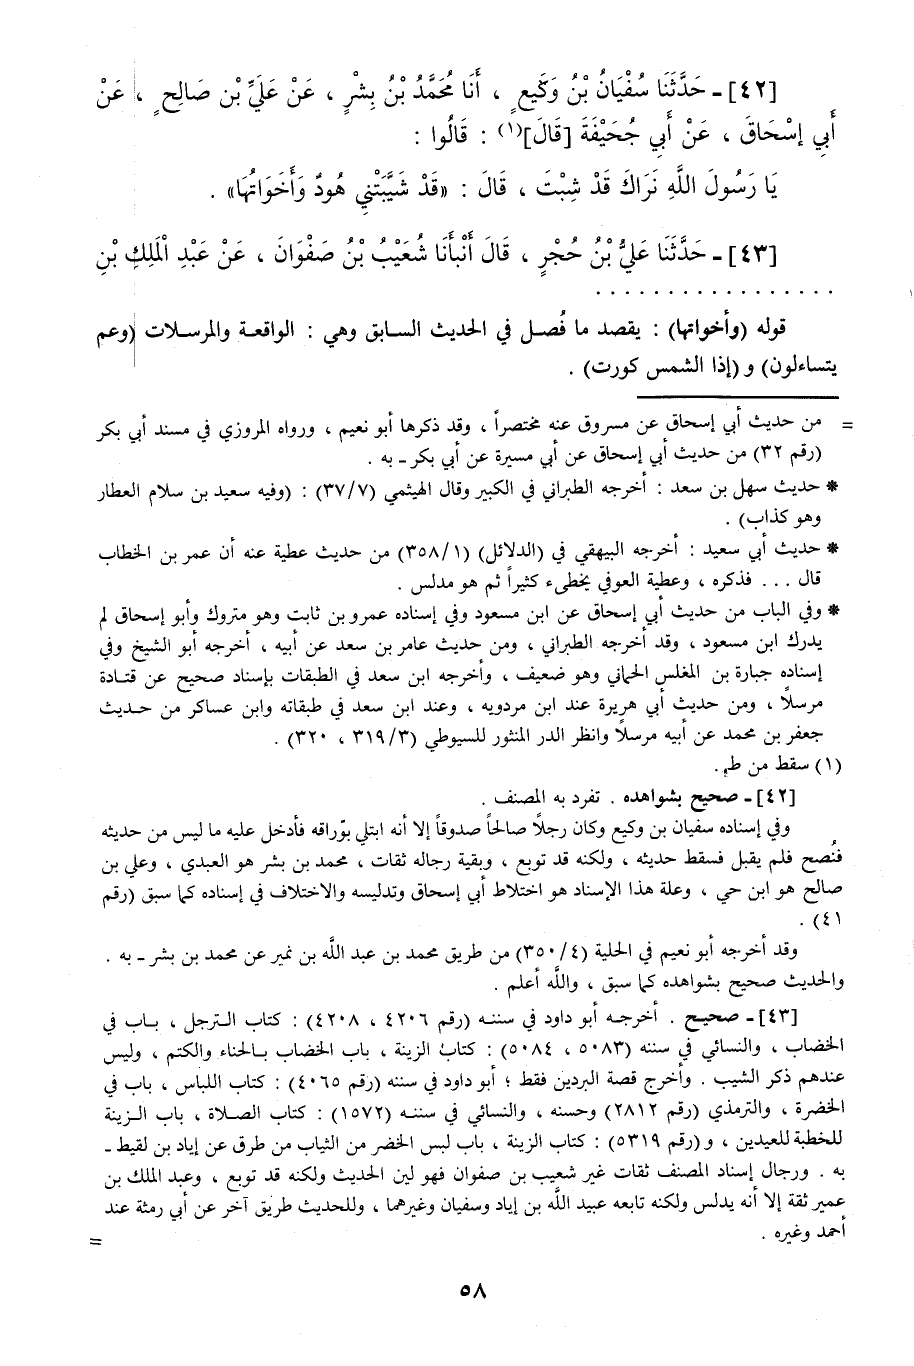 [٤٢] ـ حَدَّثَنَا سُفْيَانُ بْنُ وَكَيعٍ ، أَنَا مُحَمَّدُ بْنُ بِشْرٍ ، عَنْ عَلَيِّ بْن صَالِحٍ ، عَنْ
أَبِي إسْحَاقَ ، عَنْ أَبي جُحَيْفَةَ [قَالَ](١) : قَالُوا :
يَا رَسُولَ اللَّهِ نَرَاكَ قَدْ شِبْتَ ، قَالَ : «قَدْ شَيَّبَتْنِي هُودٌ وَأَخَوَاتُهَا» .
[٤٣] ـ حَدَّثَنَا عَليُّ بْنُ حُجْرٍ ، قَالَ أَنْبأَنَا شُعَيْبُ بْنُ صَفْوَانَ ، عَنْ عَبْدِ الْمَلِكِ بْنِ
. . . . . . . . . . . . . . . . .
قوله (وأخواتها) : يقصد ما فُصل في الحديث السابق وهي : الواقعة والمرسلات (وعم
يتساءلون) و (إذا الشمس كورت) .
= من حديث أبي إسحاق عن مسروق عنه مختصراً ، وقد ذكرها أبو نعيم ، ورواه المروزي في مسند أبي بكر
(رقم ٣٢) من حديث أبي إسحاق عن أبي مسيرة عن أبي بكر ـ به .
* حديث سهل بن سعد : أخرجه الطبراني في الكبير وقال الهيثمي (٣٧/٧) : (وفيه سعيد بن سلام العطار
وهو كذاب) .
* حديث أبي سعيد : أخرجه البيهقي في (الدلائل) (٣٥٨/١) من حديث عطية عنه أن عمر بن الخطاب
قال ... فذكره ، وعطية العوفي يخطىء كثيراً ثم هو مدلس .
* وفي الباب من حديث أبي إسحاق عن ابن مسعود وفي إسناده عمرو بن ثابت وهو متروك وأبو إسحاق لم
يدرك ابن مسعود ، وقد أخرجه الطبراني ، ومن حديث عامر بن سعد عن أبيه ، أخرجه أبو الشيخ وفي
إسناده جبارة بن المغلس الحماني وهو ضعيف ، وأخرجه ابن سعد في الطبقات بإسناد صحيح عن قتادة
مرسلاً ، ومن حديث أبي هريرة عند ابن مردويه ، وعند ابن سعد في طبقاته وابن عساكر من حديث
جعفر بن محمد عن أبيه مرسلاً وانظر الدر المنثور للسيوطي (٣١٩/٣ ، ٣٢٠) .
(١) سقط من ط.
[٤٢] ـ صحيح بشواهده . تفرد به المصنف .
وفي إسناده سفيان بن وكيع وكان رجلاً صالحاً صدوقاً إلا أنه ابتلي بورّاقه فأدخل عليه ما ليس من حديثه
فنُصح فلم يقبل فسقط حديثه ، ولكنه قد توبع ، وبقية رجاله ثقات ، محمد بن بشر هو العبدي ، وعلي بن
صالح هو ابن حي ، وعلة هذا الإسناد هو اختلاط أبي إسحاق وتدليسه والاختلاف في إسناده كما سبق (رقم
٤١) .
وقد أخرجه أبو نعيم في الحلية (٣٥٠/٤) من طريق محمد بن عبد الله بن نمير عن محمد بن بشر ـ به .
والحديث صحيح بشواهده كما سبق ، والله أعلم .
[٤٣] ـ صحيح . أخرجه أبو داود في سننه (رقم ٤٢٠٦ ، ٤٢٠٨) : كتاب الترجل ، باب في
الخضاب ، والنسائي في سننه (٥٠٨٣ ، ٥٠٨٤) : كتاب الزينة ، باب الخضاب بالحناء والكتم ، وليس
عندهم ذكر الشيب . وأخرج قصة البردين فقط ؛ أبو داود في سننه (رقم ٤٠٦٥) : كتاب اللباس ، باب في
الخضرة ، والترمذي (رقم ٢٨١٢) وحسنه ، والنسائي في سننه (١٥٧٢) : كتاب الصلاة ، باب الزينة
للخطبة للعيدين ، و(رقم ٥٣١٩) : كتاب الزينة ، باب لبس الخضر من الثياب من طرق عن إياد بن لقيط ـ
به . ورجال إسناد المصنف ثقات غير شعيب بن صفوان فهو لين الحديث ولكنه قد توبع ، وعبد الملك بن
عمير ثقة إلا أنه يدلس ولكنه تابعه عبيد الله بن إياد وسفيان وغيرهما ، وللحديث طريق آخر عن أبي رمثة عند
أحمد وغيره . =
٥٨